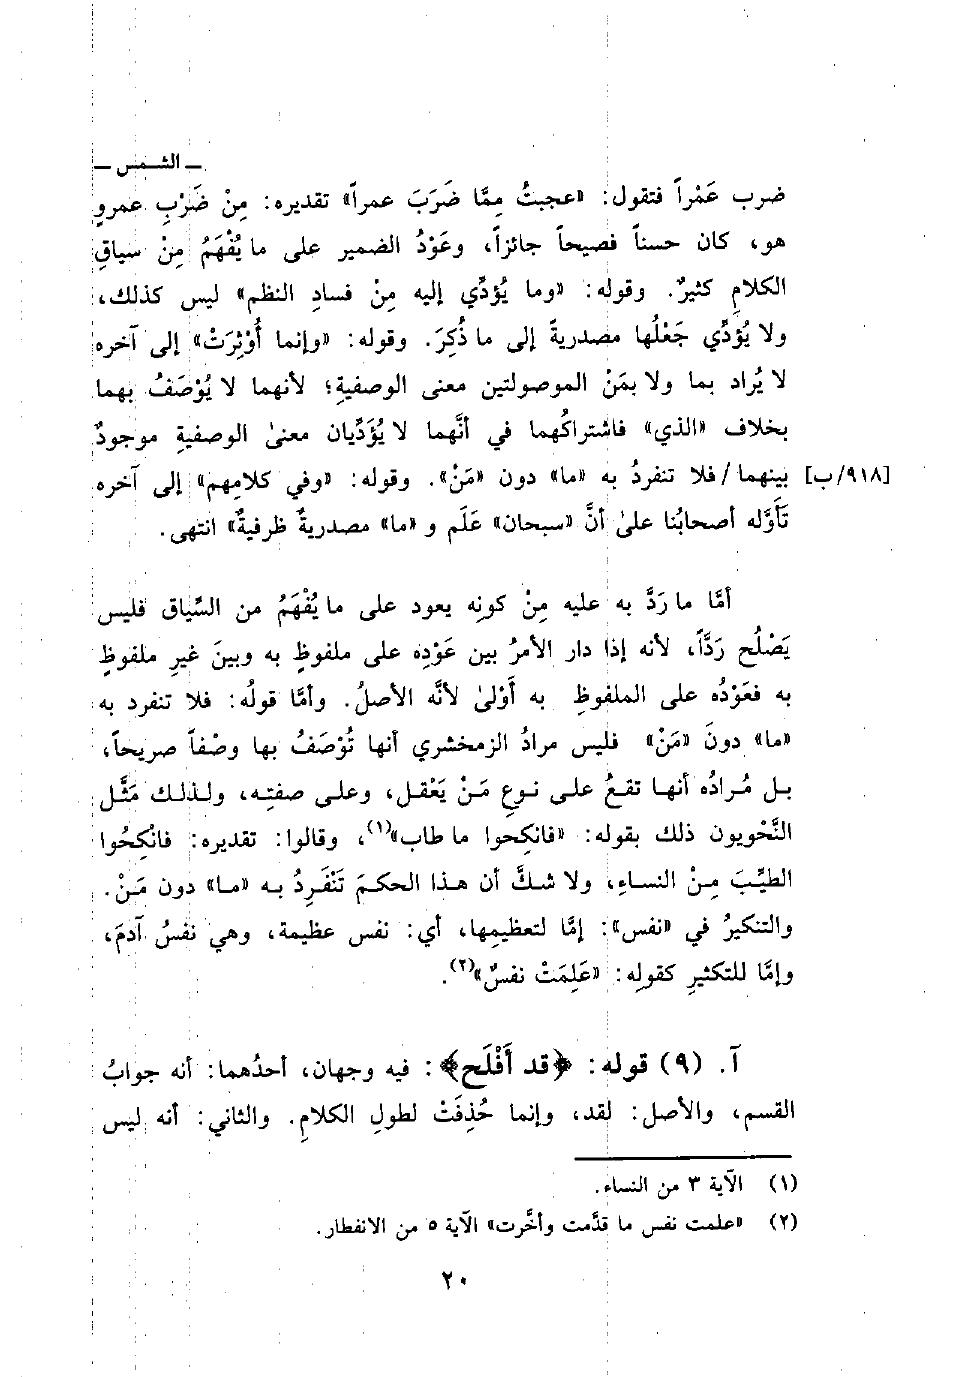 ـ الشمس ـ
ضرب عَمْراً فتقول: «عجبتُ مِمَّا ضَرَبَ عمراً» تقديره: مِنْ ضَرْبِ عمروٍ
هو، كان حسناً فصيحاً جائزاً، وعَوْدُ الضمير على ما يُفْهَمُ مِنْ سياقِ
الكلامِ كثيرٌ. وقوله: «وما يُؤدِّي إليه مِنْ فسادِ النظم» ليس كذلك،
ولا يُؤدِّي جَعْلُها مصدريةً إلى ما ذُكِرَ. وقوله: «وإنما أُوْثِرَتْ» إلى آخره
لا يُراد بما ولا بمَنْ الموصولتين معنى الوصفيةِ؛ لأنهما لا يُوْصَفُ بهما
بخلاف «الذي» فاشتراكُهما في أنَّهما لا يُؤَدِّيان معنىٰ الوصفيةِ موجودٌ
[٩١٨/ب] بينهما/ فلا تنفردُ به «ما» دون «مَنْ». وقوله: «وفي كلامِهم» إلى آخره
تَأَوَّله أصحابُنا علىٰ أنَّ «سبحان» عَلَم و «ما» مصدريةٌ ظرفيةٌ» انتهى.
أمَّا ما رَدَّ به عليه مِنْ كونِه يعود على ما يُفْهَمُ من السِّياق فليس
يَصْلُح رَدَّاً، لأنه إذا دار الأمرُ بين عَوْدِه على ملفوظٍ به وبينَ غيرِ ملفوظٍ
به فعَوْدُه على الملفوظِ به أَوْلىٰ لأنَّه الأصلُ. وأمَّا قولُه: فلا تنفرد به
«ما» دونَ «مَنْ» فليس مرادُ الزمخشري أنها تُوْصَفُ بها وصْفاً صريحاً،
بل مُرادُه أنها تقعُ على نوعِ مَنْ يَعْقل، وعلى صفتِه، ولذلك مَثَّل
النَّحْويون ذلك بقوله: «فانكِحوا ما طاب»(١)، وقالوا: تقديره: فانْكِحُوا
الطيِّبَ مِنْ النساءِ، ولا شكَّ أن هذا الحكمَ تَنْفَرِدُ به «ما» دون مَنْ.
والتنكيرُ في «نفس»: إمَّا لتعظيمِها، أي: نفس عظيمة، وهي نفسُ آدمَ،
وإمَّا للتكثيرِ كقولِه: «عَلِمَتْ نفسٌ»(٢).
آ. (٩) قوله: ﴿قد أَفْلَح﴾: فيه وجهان، أحدُهما: أنه جوابُ
القسم، والأصل: لقد، وإنما حُذِفَتْ لطولِ الكلامِ. والثاني: أنه ليس
(١) الآية ٣ من النساء.
(٢) «علمت نفس ما قدَّمت وأخَّرت» الآية ٥ من الانفطار.
٢٠